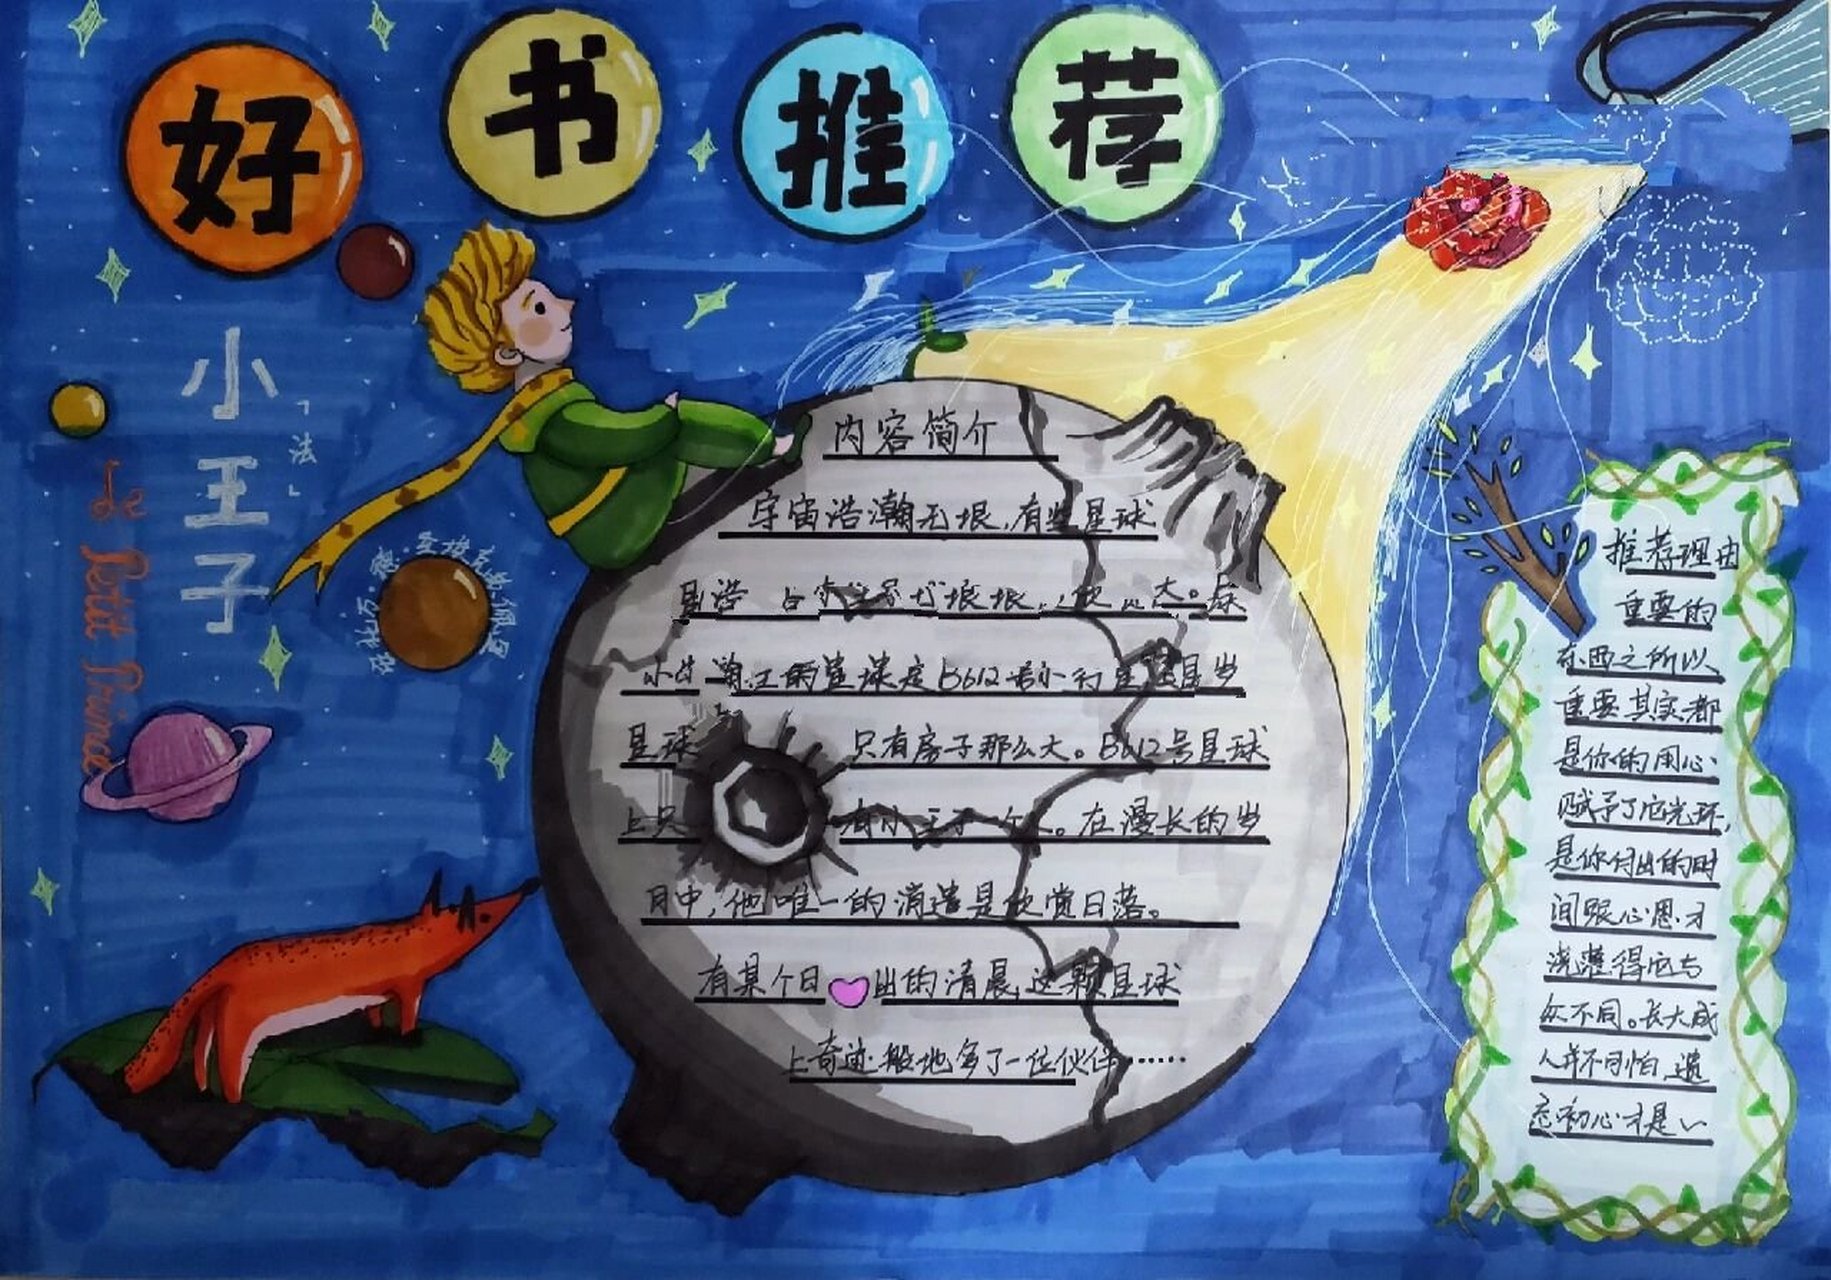 好书推荐
小王子
「法」
Le Petit Prince
安托万·德·圣埃克苏佩里
内容简介
宇宙浩瀚无垠,有些星球
星球
只有房子那么大。B612号星球
上只有小王子一个人。在漫长的岁
月中,他唯一的消遣是欣赏日落。
有某个日出的清晨,这颗星球
上奇迹般地多了一位伙伴……
推荐理由
重要的
东西之所以
重要其实都
是你的用心
赋予了它光环,
是你付出的时
间跟心思才
浇灌得它与
众不同。长大成
人并不可怕,遗
忘初心才是